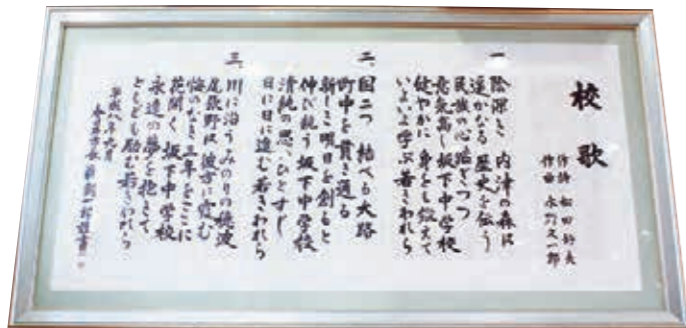 校歌
作詩 松田好夫
作曲 永野又一郎
一、
陰深き 内津の森は
遥かなる 歴史を伝う
民族の心 つつ
意気高し 坂下中学校
健やかに 身をも鍛えて
いよよ呼ぶ 若きわれら
二、
国二つ 結べる大路
町中を 貫き通る
新しき 明日を創ると
伸び競う 坂下中学校
清純の 思いひとすじ
日に日に進む 若きわれら
三、
川に沿う みのりの穂波
尾張野は 彼方に霞む
悔のなき 三年をここに
花開く 坂下中学校
永遠の 夢を抱きて
ともども励む 若きわれら
平成八年六月
春日井市長 鵜飼一郎謹書